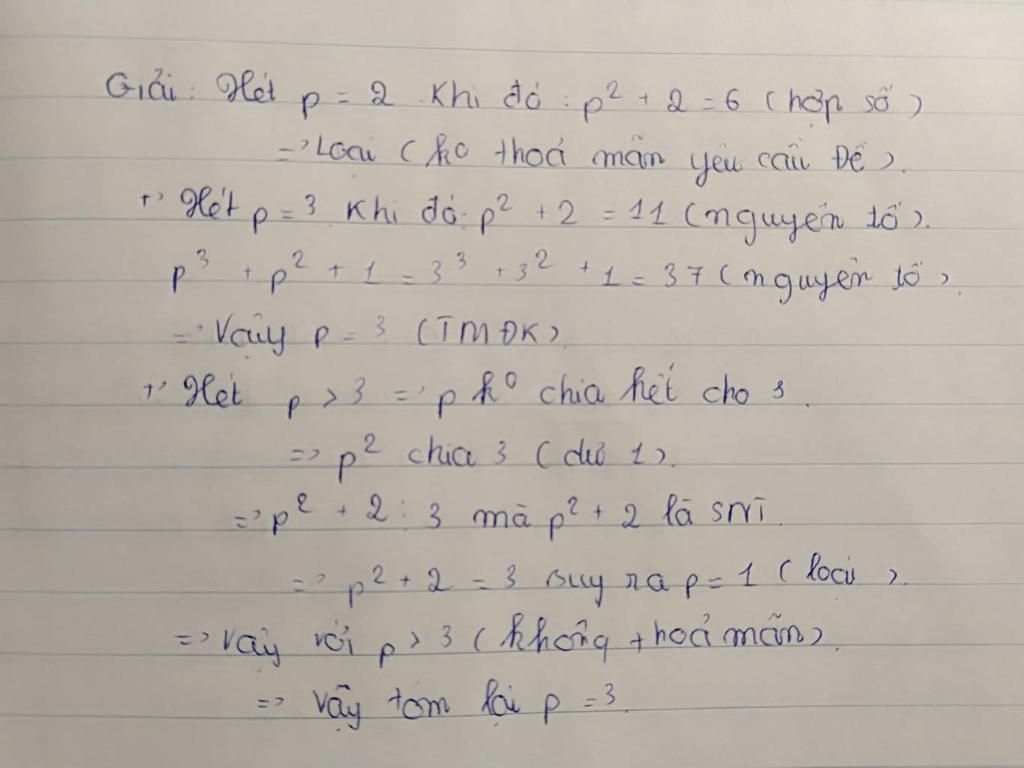 Giải: Xét p = 2. Khi đó: p² + 2 = 6 (hợp số)
=> Loại (k⁰ thoả mãn yêu cầu Đề).
+, Xét p = 3 Khi đó: p² + 2 = 11 (nguyên tố).
p³ + p² + 1 = 3³ + 3² + 1 = 37 (nguyên tố).
=> Vậy p = 3 (TMĐK).
+, Xét p > 3 => p k⁰ chia hết cho 3.
=> p² chia 3 (dư 1).
=> p² + 2 : 3 mà p² + 2 là SNT.
=> p² + 2 = 3 suy ra p = 1 (loại).
=> Vậy với p > 3 (không thoả mãn).
=> Vậy tóm lại p = 3.